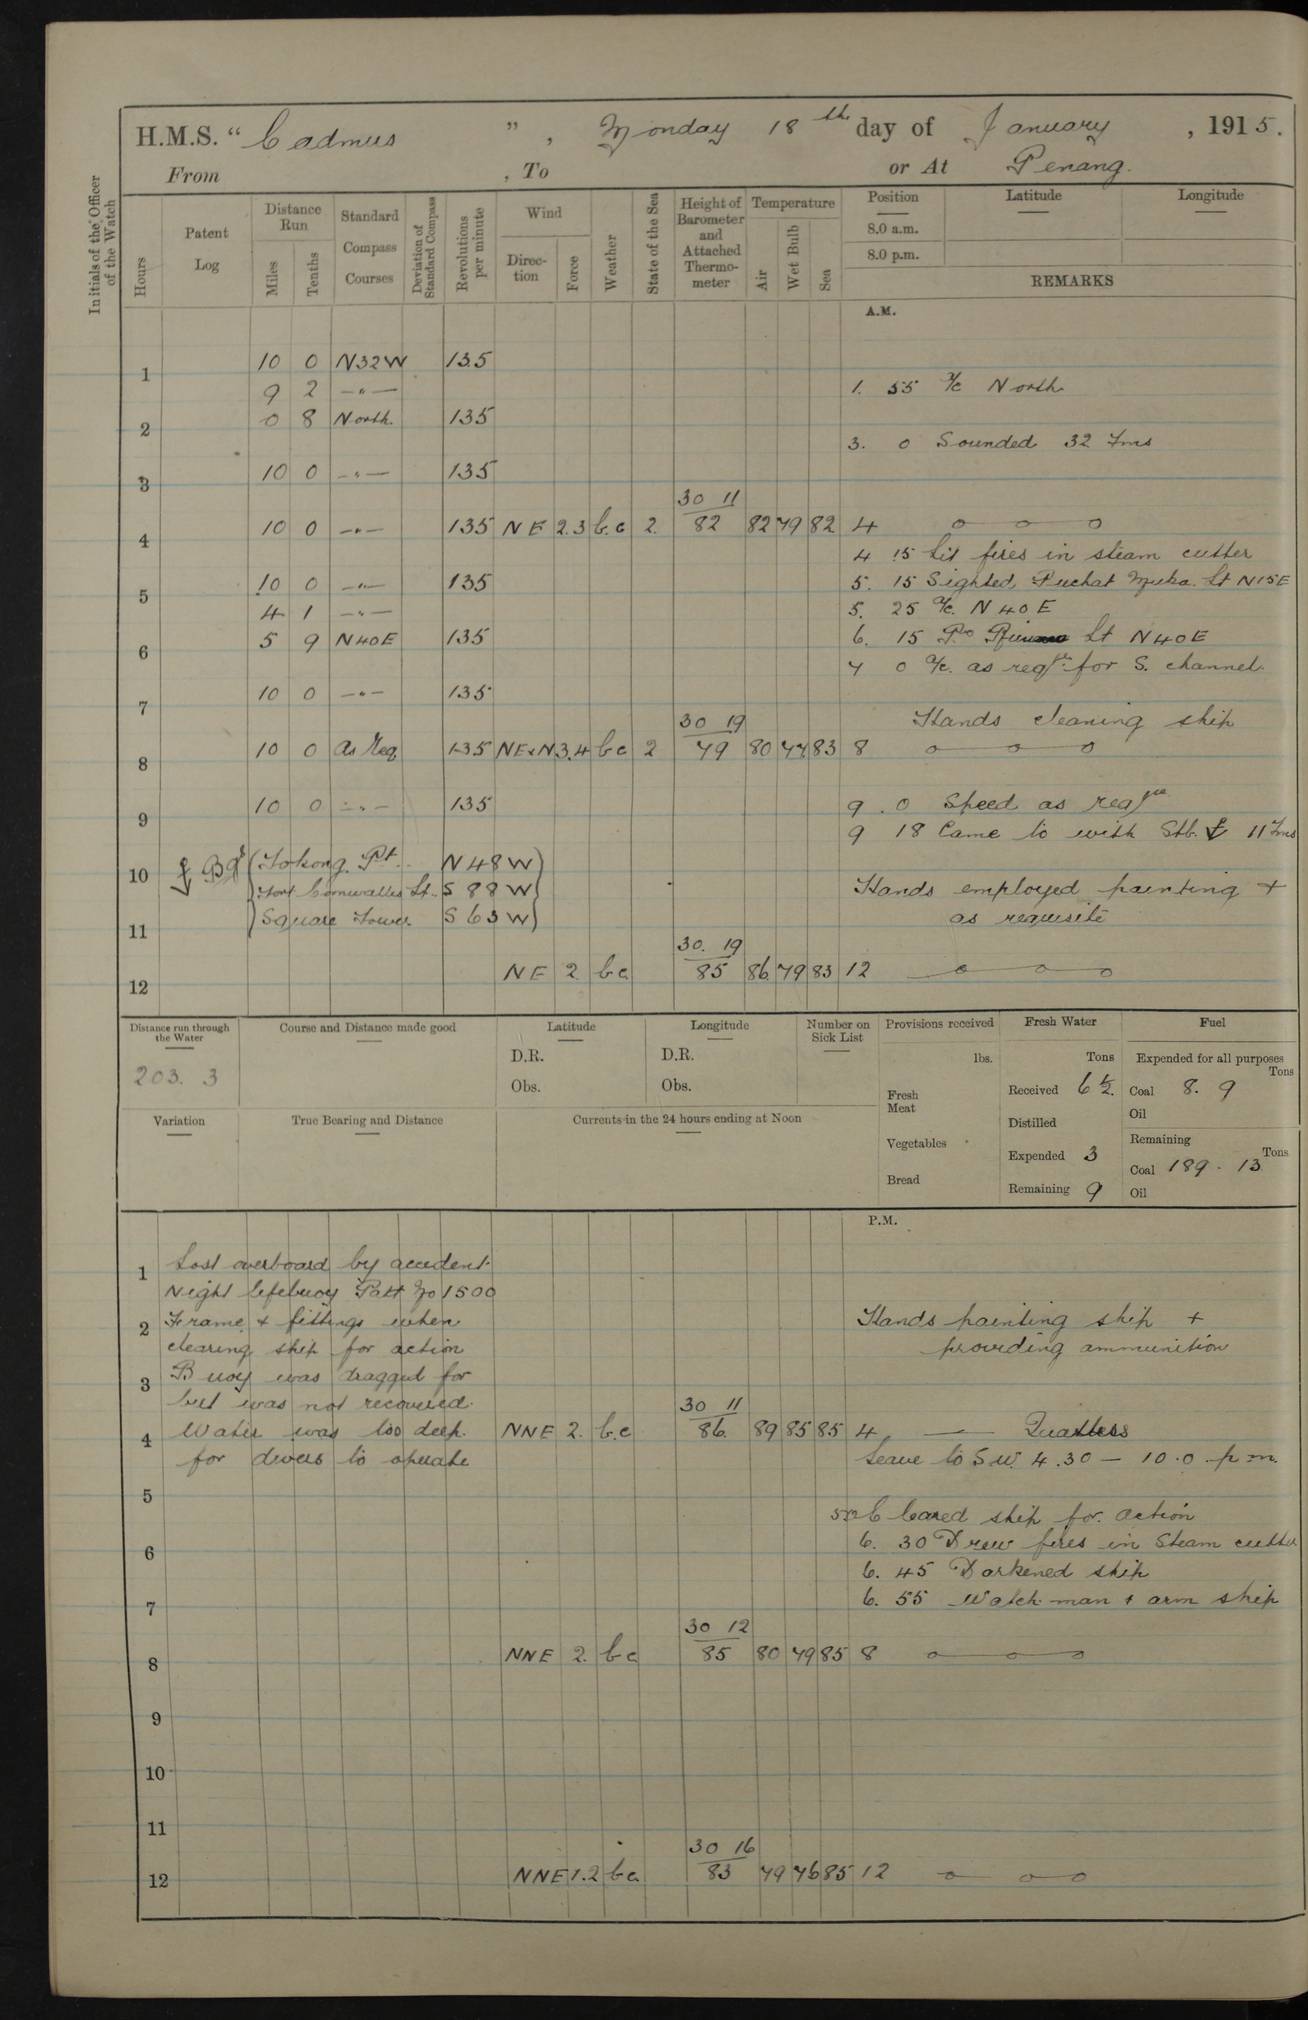 H.M.S. "Cadmus", Monday 18th day of January, 1915.
From , To or At Penang.
Initials of the Officer of the Watch
Hours
Patent Log
Distance Run
Miles Tenths
Standard Compass Courses
Deviation of Standard Compass
Revolutions per minute
Wind
Direction Force
Weather
State of the Sea
Height of Barometer and Attached Thermometer
Temperature
Air Wet Bulb Sea
Position Latitude Longitude
8.0 a.m.
8.0 p.m.
REMARKS
A.M.
1 10 0 N32W 135
9 2 —"— 1. 55 a/c North
2 0 8 North. 135
3. 0 Sounded 32 fms
3 10 0 —"— 135
30 11
4 10 0 —"— 135 NE 2.3 b.c 2. 82 82 79 82 4
4 15 Lit fires in steam cutter
5 10 0 —"— 135 5. 15 Sighted Puchat Muka Lt N15E
4 1 —"— 5. 25 a/c. N40E
6 5 9 N40E 135 6. 15 Lt N40E
7 0 a/c. as reqre for S. channel.
7 10 0 —"— 135
30 19 Hands cleaning ship
8 10 0 As Req 135 NExN 3.4 bc 2 79 80 77 83 8
9 10 0 —"— 135 9. 0 Speed as reqre
9 18 Came to with Stb. 11 fms
10 Bgs Tokong Pt. N48W
Fort Cornwallis Lt. S88W Hands employed painting +
11 Square Tower. S63W as requisite
30. 19
12 NE 2 bc 85 86 79 83 12
Distance run through the Water
203. 3
Course and Distance made good
Latitude
D.R.
Obs.
Longitude
D.R.
Obs.
Number on Sick List
Provisions received
lbs.
Fresh Meat
Vegetables
Bread
Fresh Water
Tons
Received 6½
Distilled
Expended 3
Remaining 9
Fuel
Expended for all purposes
Tons
Coal 8. 9
Oil
Remaining
Tons
Coal 189. 13
Oil
Variation
True Bearing and Distance
Currents in the 24 hours ending at Noon
P.M.
Lost overboard by accident.
1
Night lifebuoy Patt No 1500
2 Frame & fittings when Hands painting ship +
clearing ship for action providing ammunition
3 Buoy was dragged for
but was not recovered. 30 11
4 Water was too deep. NNE 2. b.c 86. 89 85 85 4 Quarters
for divers to operate Leave to S.W. 4.30 — 10.0 p.m.
5
Cleared ship for action
6 6. 30 Drew fires in Steam cutter
6. 45 Darkened ship
7 6. 55 Watch man & arm ship
30 12
8 NNE 2. bc 85 80 79 85 8
9
10
11
30 16
12 NNE 1.2 bc. 83 79 76 85 12